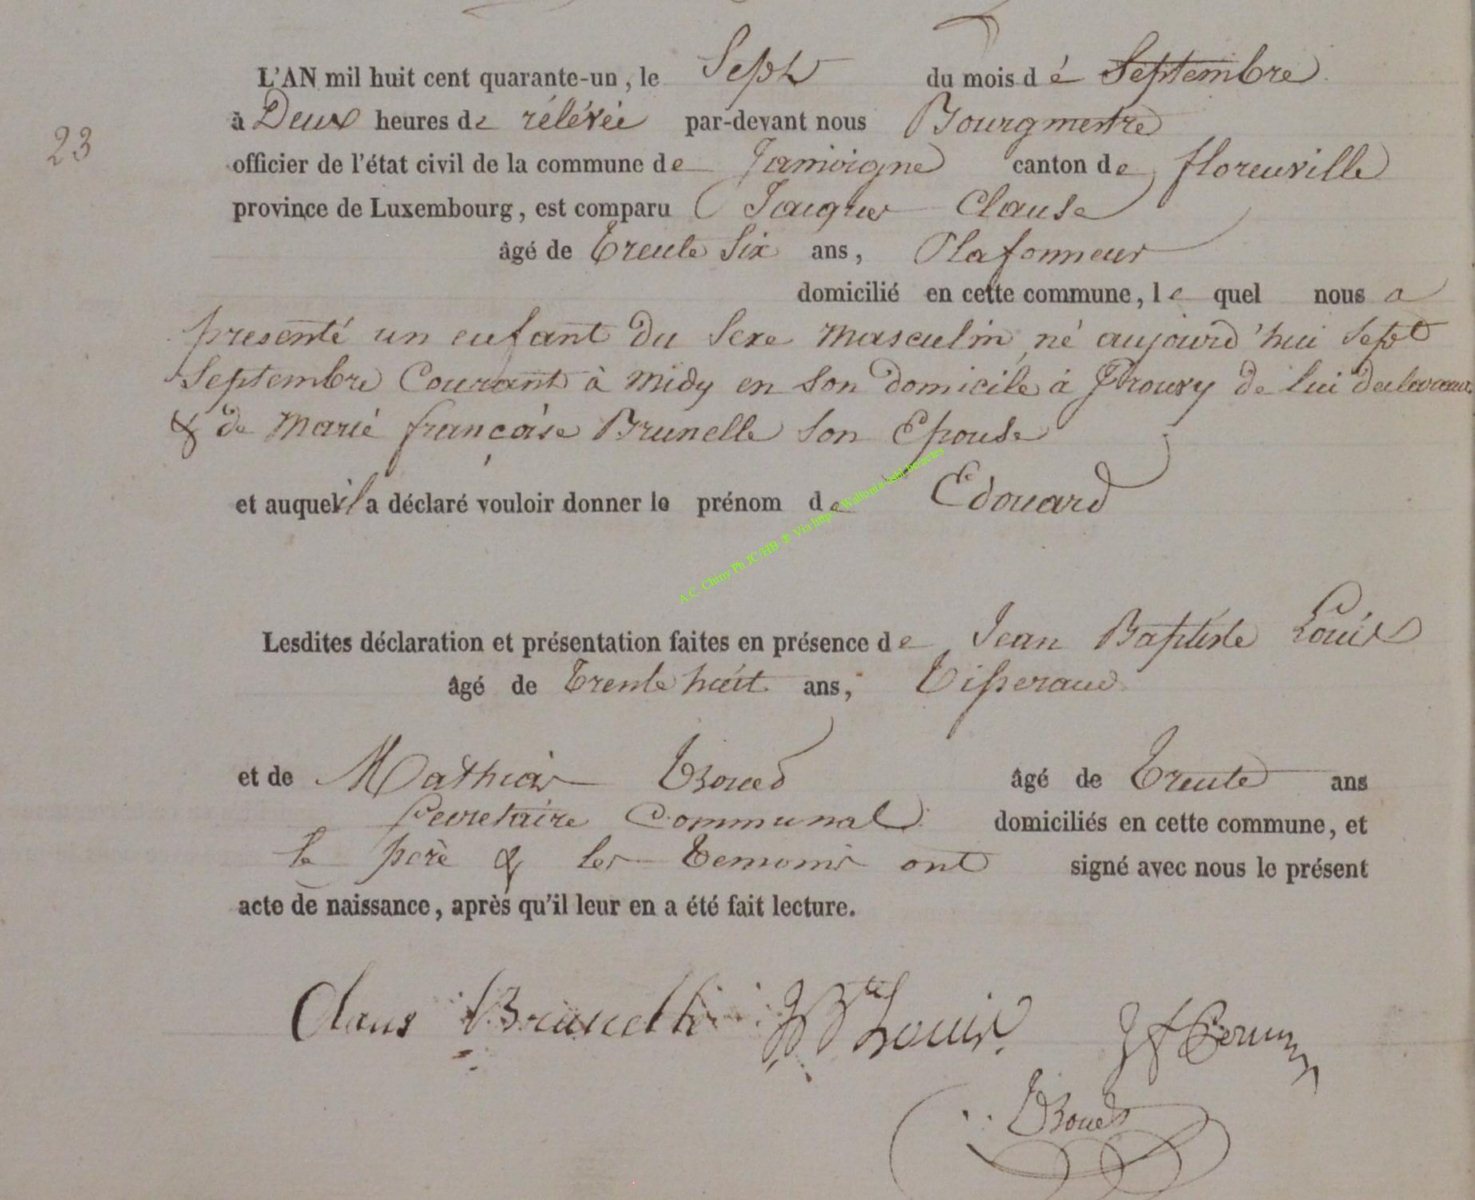 L'AN mil huit cent quarante-un, le Sept du mois dé Septembre
23
à Deux heures de rélévée par-devant nous Bourgmestre
officier de l'état civil de la commune de Jamoigne canton de florenville
province de Luxembourg, est comparu Jacques Clause
âgé de Trente Six ans, Plafonneur
domicilié en cette commune, le quel nous a
presenté un enfant du Sexe masculin né aujourd'hui Sept
Septembre Courant à midy en Son domicile à Prouvy de lui
& de Marié françoise Brunelle Son Epouse
et auquel il a déclaré vouloir donner le prénom de Edouard
A.C. Chiny Ph JC/HB
Lesdites déclaration et présentation faites en présence de Jean Baptiste Louis
âgé de Trente huit ans, Tisserand
et de Mathias âgé de Trente ans
Secretaire Communal domiciliés en cette commune, et
le perè & les temoins ont signé avec nous le présent
acte de naissance, après qu'il leur en a été fait lecture.
Claus Brunelle JBte Louis